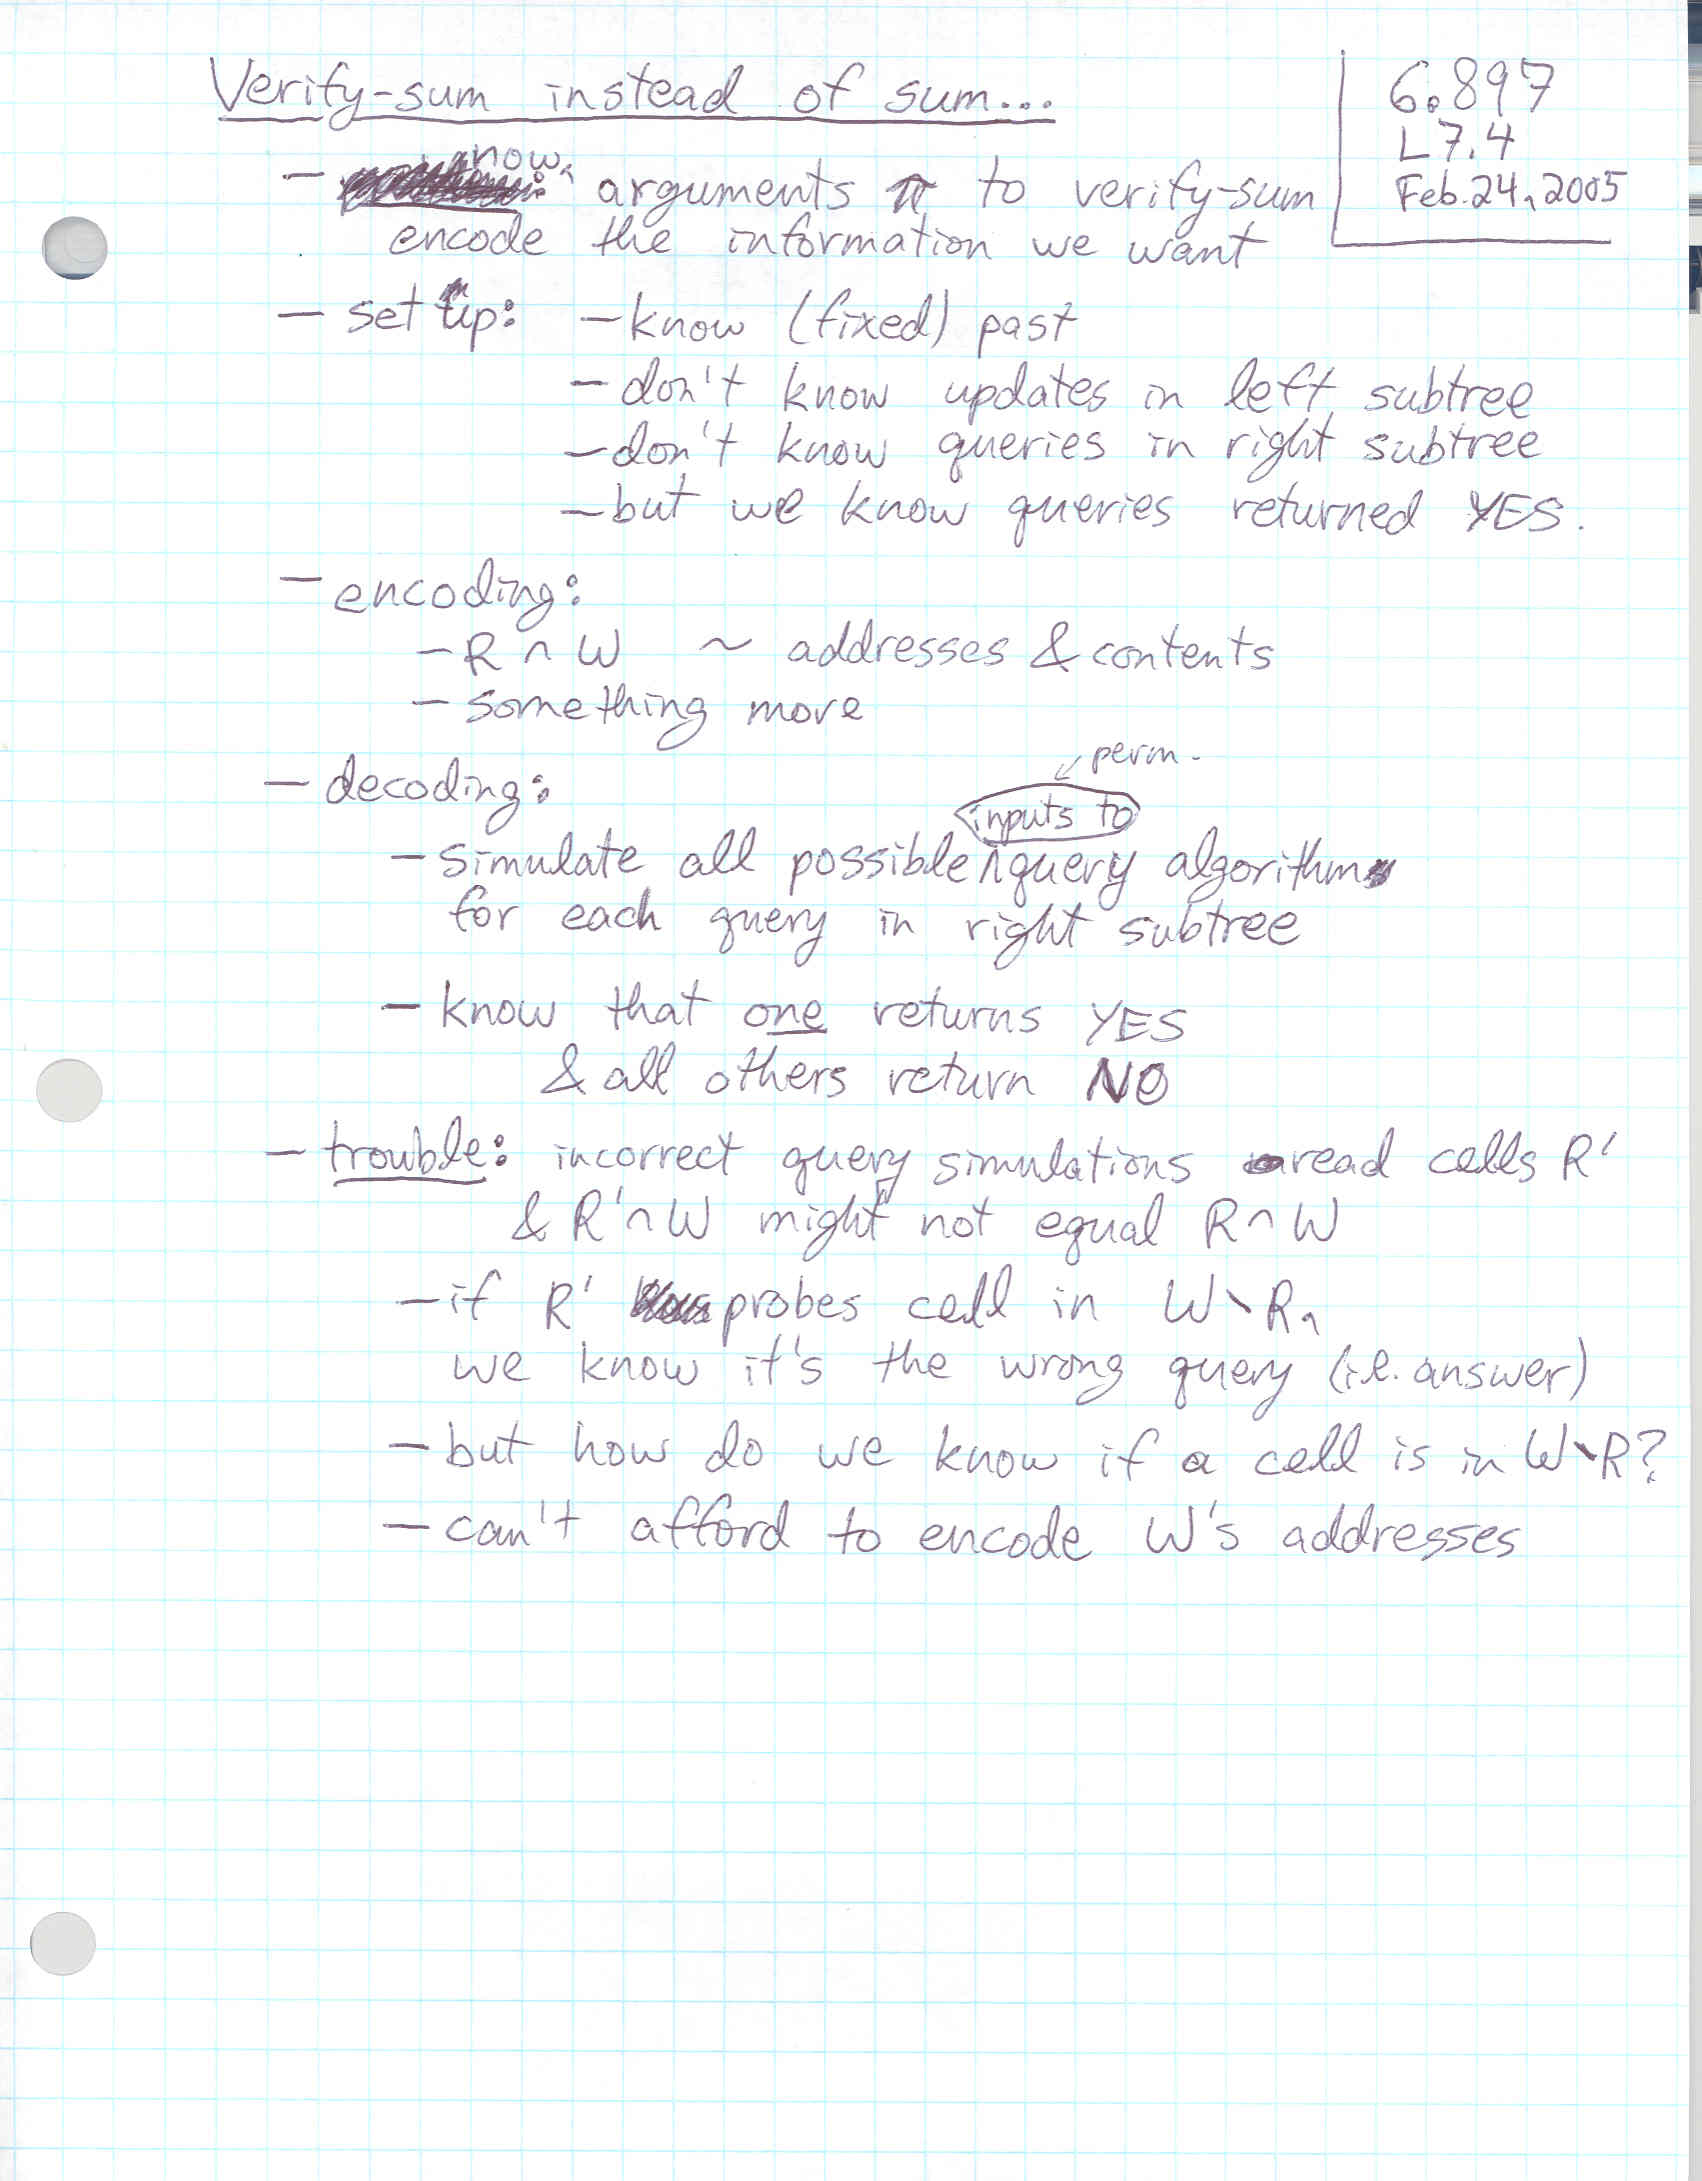 Verify-sum instead of sum...
6.897
L7.4
Feb. 24, 2005
- now, arguments π to verify-sum
encode the information we want
- set up: - know (fixed) past
- don't know updates in left subtree
- don't know queries in right subtree
- but we know queries returned YES.
- encoding:
- R ∩ W ~ addresses & contents
- something more
- decoding:
↙ perm.
inputs to
- simulate all possible ∧ query algorithm
for each query in right subtree
- know that one returns YES
& all others return NO
- trouble: incorrect query simulations read cells R'
& R' ∩ W might not equal R ∩ W
- if R' probes cell in W \ R,
we know it's the wrong query (i.e. answer)
- but how do we know if a cell is in W \ R?
- can't afford to encode W's addresses